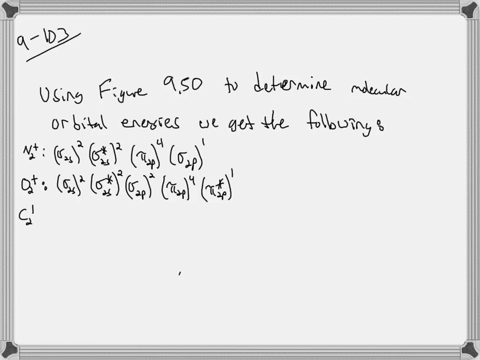 9-103
Using Figure 9.50 to determine molecular
orbital energies we get the following:
N₂⁺: (σ₂ₛ)² (σ*₂ₛ)² (π₂ₚ)⁴ (σ₂ₚ)¹
O₂⁺: (σ₂ₛ)² (σ*₂ₛ)² (σ₂ₚ)² (π₂ₚ)⁴ (π*₂ₚ)¹
C₂¹